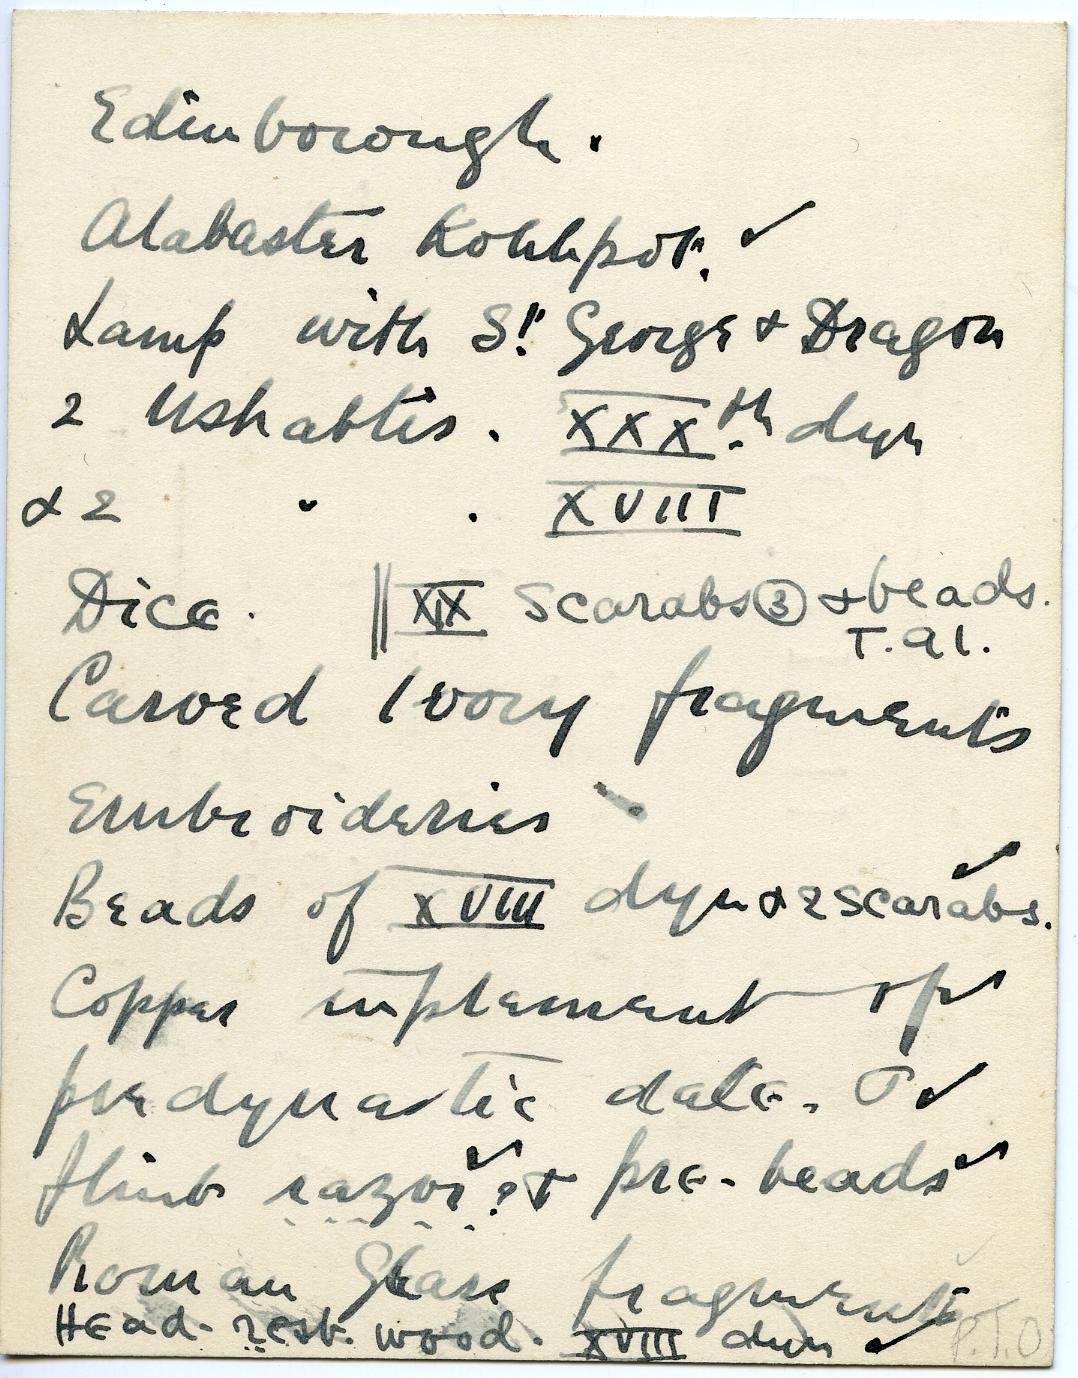 Edinborough.
Alabaster Kohlpot. ✓
Lamp with St George & Dragon
2 Ushabtis. XXXth dyn
& 2 " . XVIII
Dice. || XIX Scarabs ③ & beads.
T.A1.
Carved Ivory fragments
Embroideries
Beads of XVIII dyn & 2 scarabs. ✓
Copper implement of
predynastic date. ✓
flint razor? ✓ & pre-beads ✓
Roman Glass fragments
Head-rest. wood. XVIII dyn ✓
P.T.O